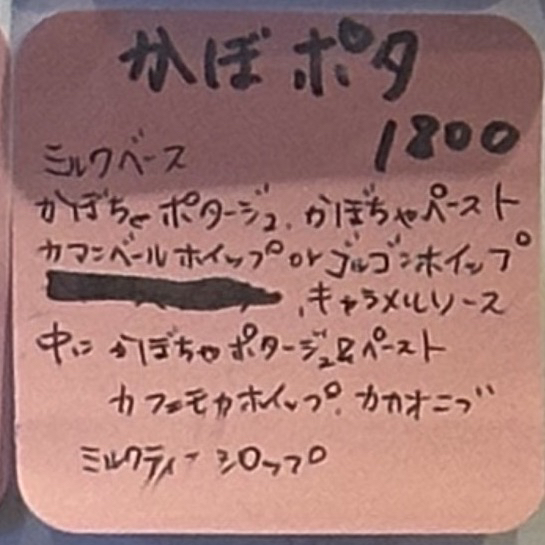 かぼポタ
1800
ミルクベース
かぼちゃポタージュ、かぼちゃペースト
カマンベールホイップorゴルゴンホイップ
、キャラメルソース
中に かぼちゃポタージュ&ペースト
カフェモカホイップ、カカオニブ
ミルクティーシロップ